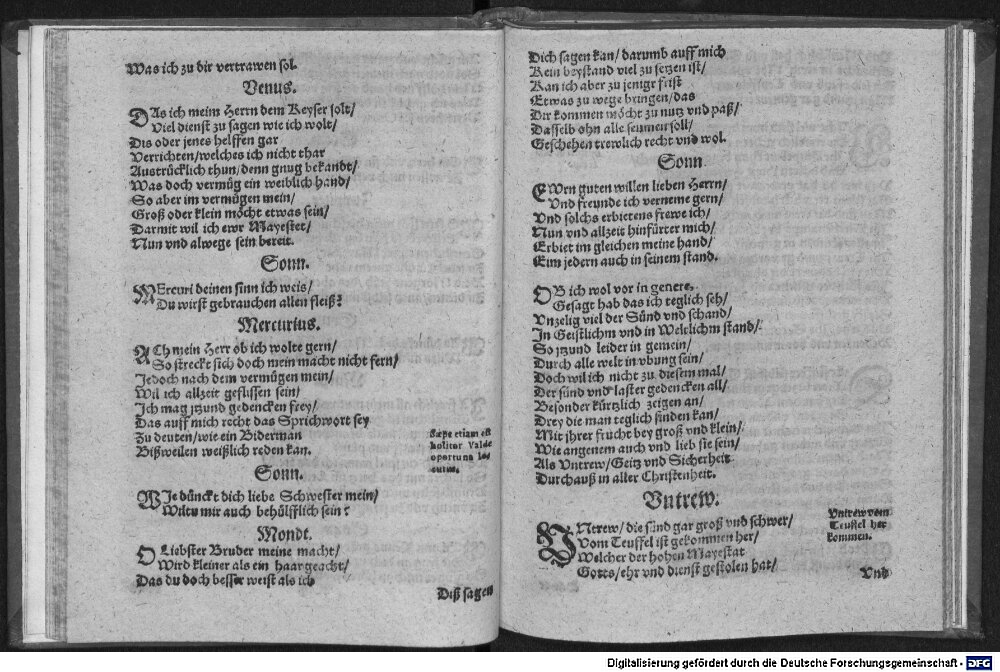 Was ich zu dir vertrawen sol.
Venus.
DAs ich meim Herrn dem Keyser solt/
Viel dienst zu sagen wie ich wolt/
Dis oder jenes helffen gar
Verrichten/welches ich nicht thar
Austrücklich thun/denn gnug bekandt/
Was doch vermüg ein weiblich hand/
So aber im vermügen mein/
Groß oder klein möcht etwas sein/
Darmit wil ich ewr Mayestet/
Nun vnd alwege sein bereit.
Sonn.
MErcuri deinen sinn ich weis/
Du wirst gebrauchen allen fleiß?
Mercurius.
ACh mein Herr ob ich wolte gern/
So streckt sich doch mein macht nicht fern/
Jedoch nach dem vermügen mein/
Wil ich allzeit geflissen sein/
Ich mag jtzund gedencken frey/
Das auff mich recht das Sprichwort sey
Zu deuten/wie ein Biderman
Bißweilen weißlich reden kan.
Sæpe etiam est
holitor valde
oportuna lo-
cutus.
Sonn.
WJe dünckt dich liebe Schwester mein/
Wiltu mir auch behülfflich sein?
Mondt.
O Liebster Bruder meine macht/
Wird kleiner als ein haar geacht/
Das du doch besser weist als ich
Diß sagen
Dich sagen kan/darumb auff mich
Kein beystand viel zu setzen ist/
Kan ich aber zu jeniger frist
Etwas zu wege bringen/das
Dir kommen möcht zu nutz vnd paß/
Dasselb ohn alle seumen soll/
Geschehen trewlich recht vnd wol.
Sonn.
EWrn guten willen lieben Herrn/
Vnd freunde ich verneme gern/
Vnd solchs erbietens frewe ich/
Nun vnd allzeit hinfürter mich/
Erbiet im gleichen meine hand/
Eim jedern auch in seinem stand.
OB ich wol vor in genere,
Gesagt hab das ich teglich seh/
Vnzelig viel der Sünd vnd schand/
In Geistlichm vnd in Weltlichm stand/
So jtzund leider in gemein/
Durch alle welt in vbung sein/
Doch wil ich nicht zu diesem mal/
Der sünd vnd laster gedencken all/
Besonder kürtzlich zeigen an/
Drey die man teglich finden kan/
Mit jhrer frucht bey groß vnd klein/
Wie angenem auch vnd lieb sie sein/
Als Vntrew/Geitz vnd Sicherheit
Durchauß in aller Christenheit.
Vntrew.
VNtrew/die sünd gar groß vnd schwer/
Vom Teuffel ist gekommen her/
Welcher der hohen Mayestat
Gotts/ehr vnd dienst gestolen hat/
Vntrew vom
Teuffel her
kommen.
Vnd
Digitalisierung gefördert durch die Deutsche Forschungsgemeinschaft - DFG